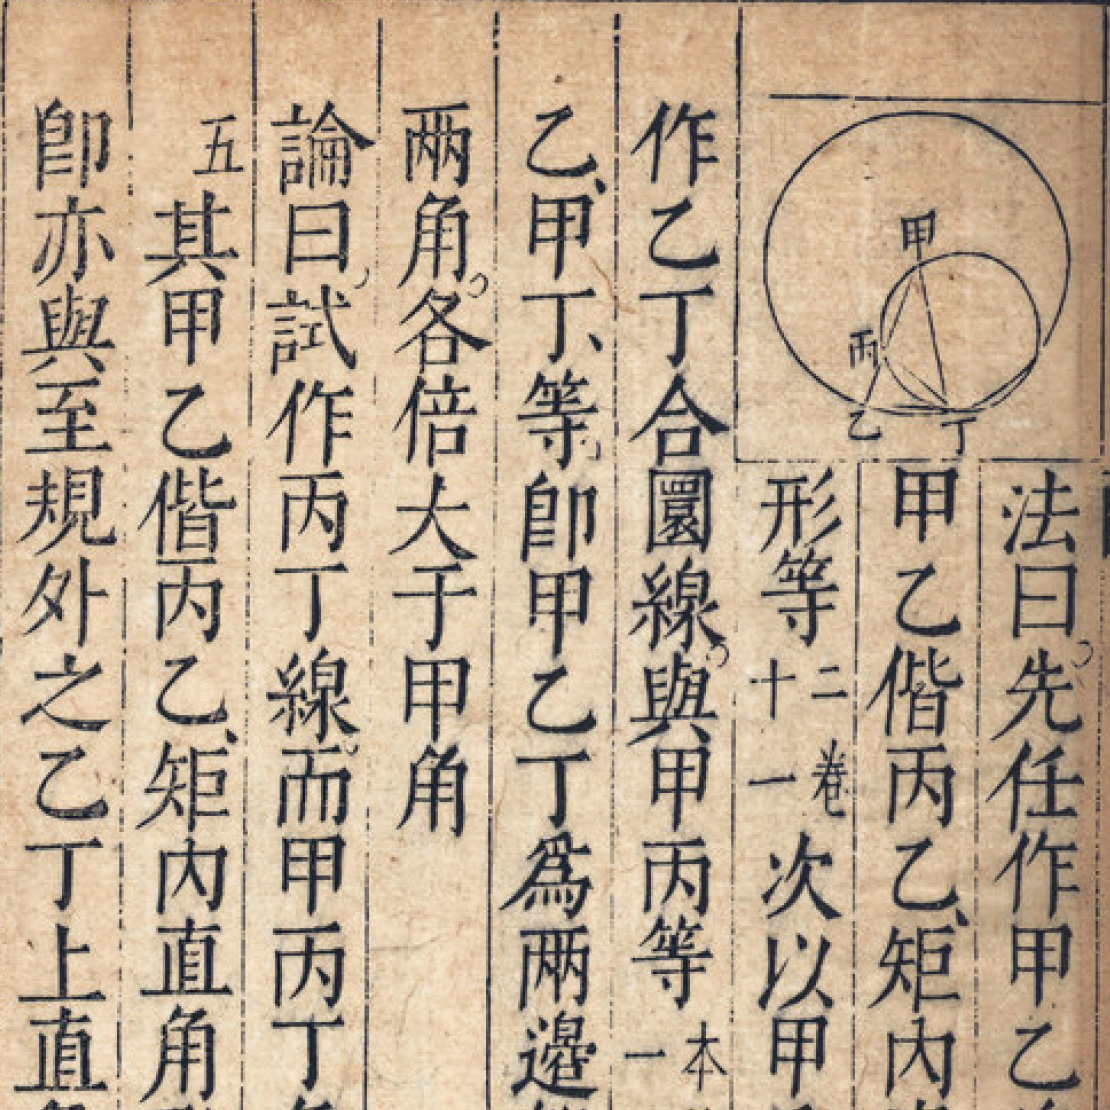 甲
丙
乙
丁
法曰先任作甲乙
甲乙偕丙乙、矩內
形等二卷十一次以甲
作乙丁合圜線與甲丙等本一
乙、甲丁、等即甲乙丁為兩邊
兩角各倍大于甲角
論曰試作丙丁線而甲丙丁
五其甲乙偕丙乙、矩內直角
即亦與至規外之乙丁上直